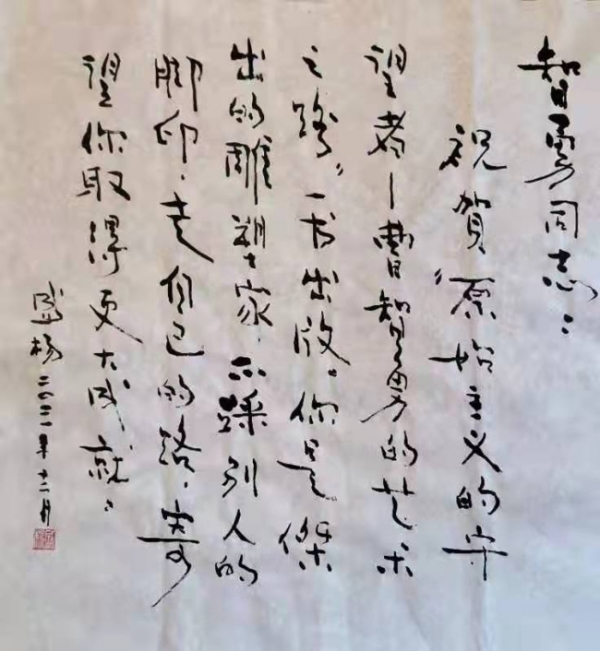 智勇同志：
祝賀“原始主义的守
望者—曹智勇的艺术
之路”一书出版。你是傑
出的雕塑家，不踩别人的
脚印，走自己的路，寄
望你取得更大成就。
盛杨 二〇二一年十二月